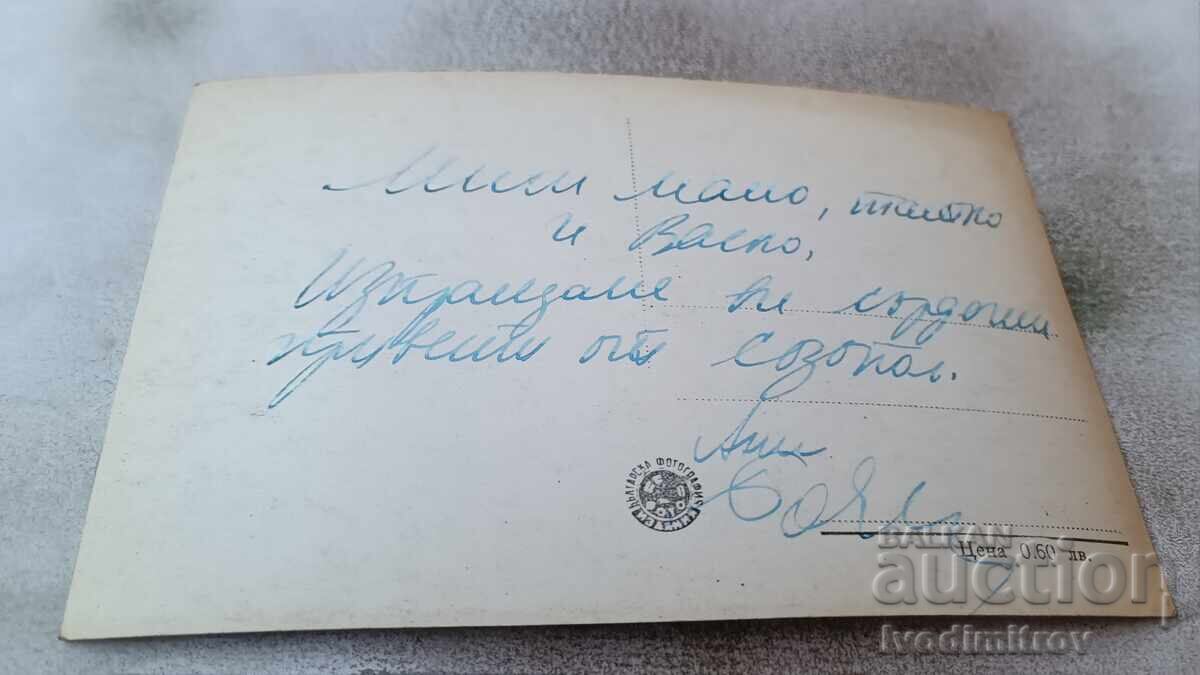 Мили мамо, татко
и Васко,
Изпращаме ви сърдечни
привети от Созопол.
Ани
БЪЛГАРСКА ФОТОГРАФИЯ
Цена 0.60 лв.
BALKAN
auction
Ivodimitrov